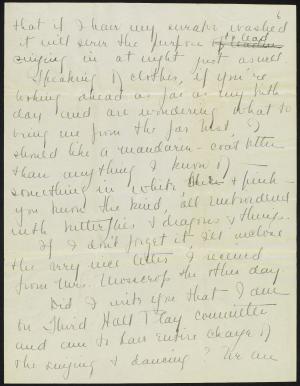 6
that if I have my serape washed
it will serve the purpose
singing in at night just as well
Speaking of clothes, if you're
looking ahead as far as my birth
day and are wondering what to
bring me from the far West, I
should like a mandarin-coat better
than anything I know of —
something in white, blue & pink —
you know the kind, all embroidered
with butterflies & dragons & things.
If I don't forget it I'll enclose
the very nice letter I received
from Mrs. Moscrop the other day
Did I write you that I am
on Third Hall Play committee
and am to have entire charge of
the singing & dancing? We are